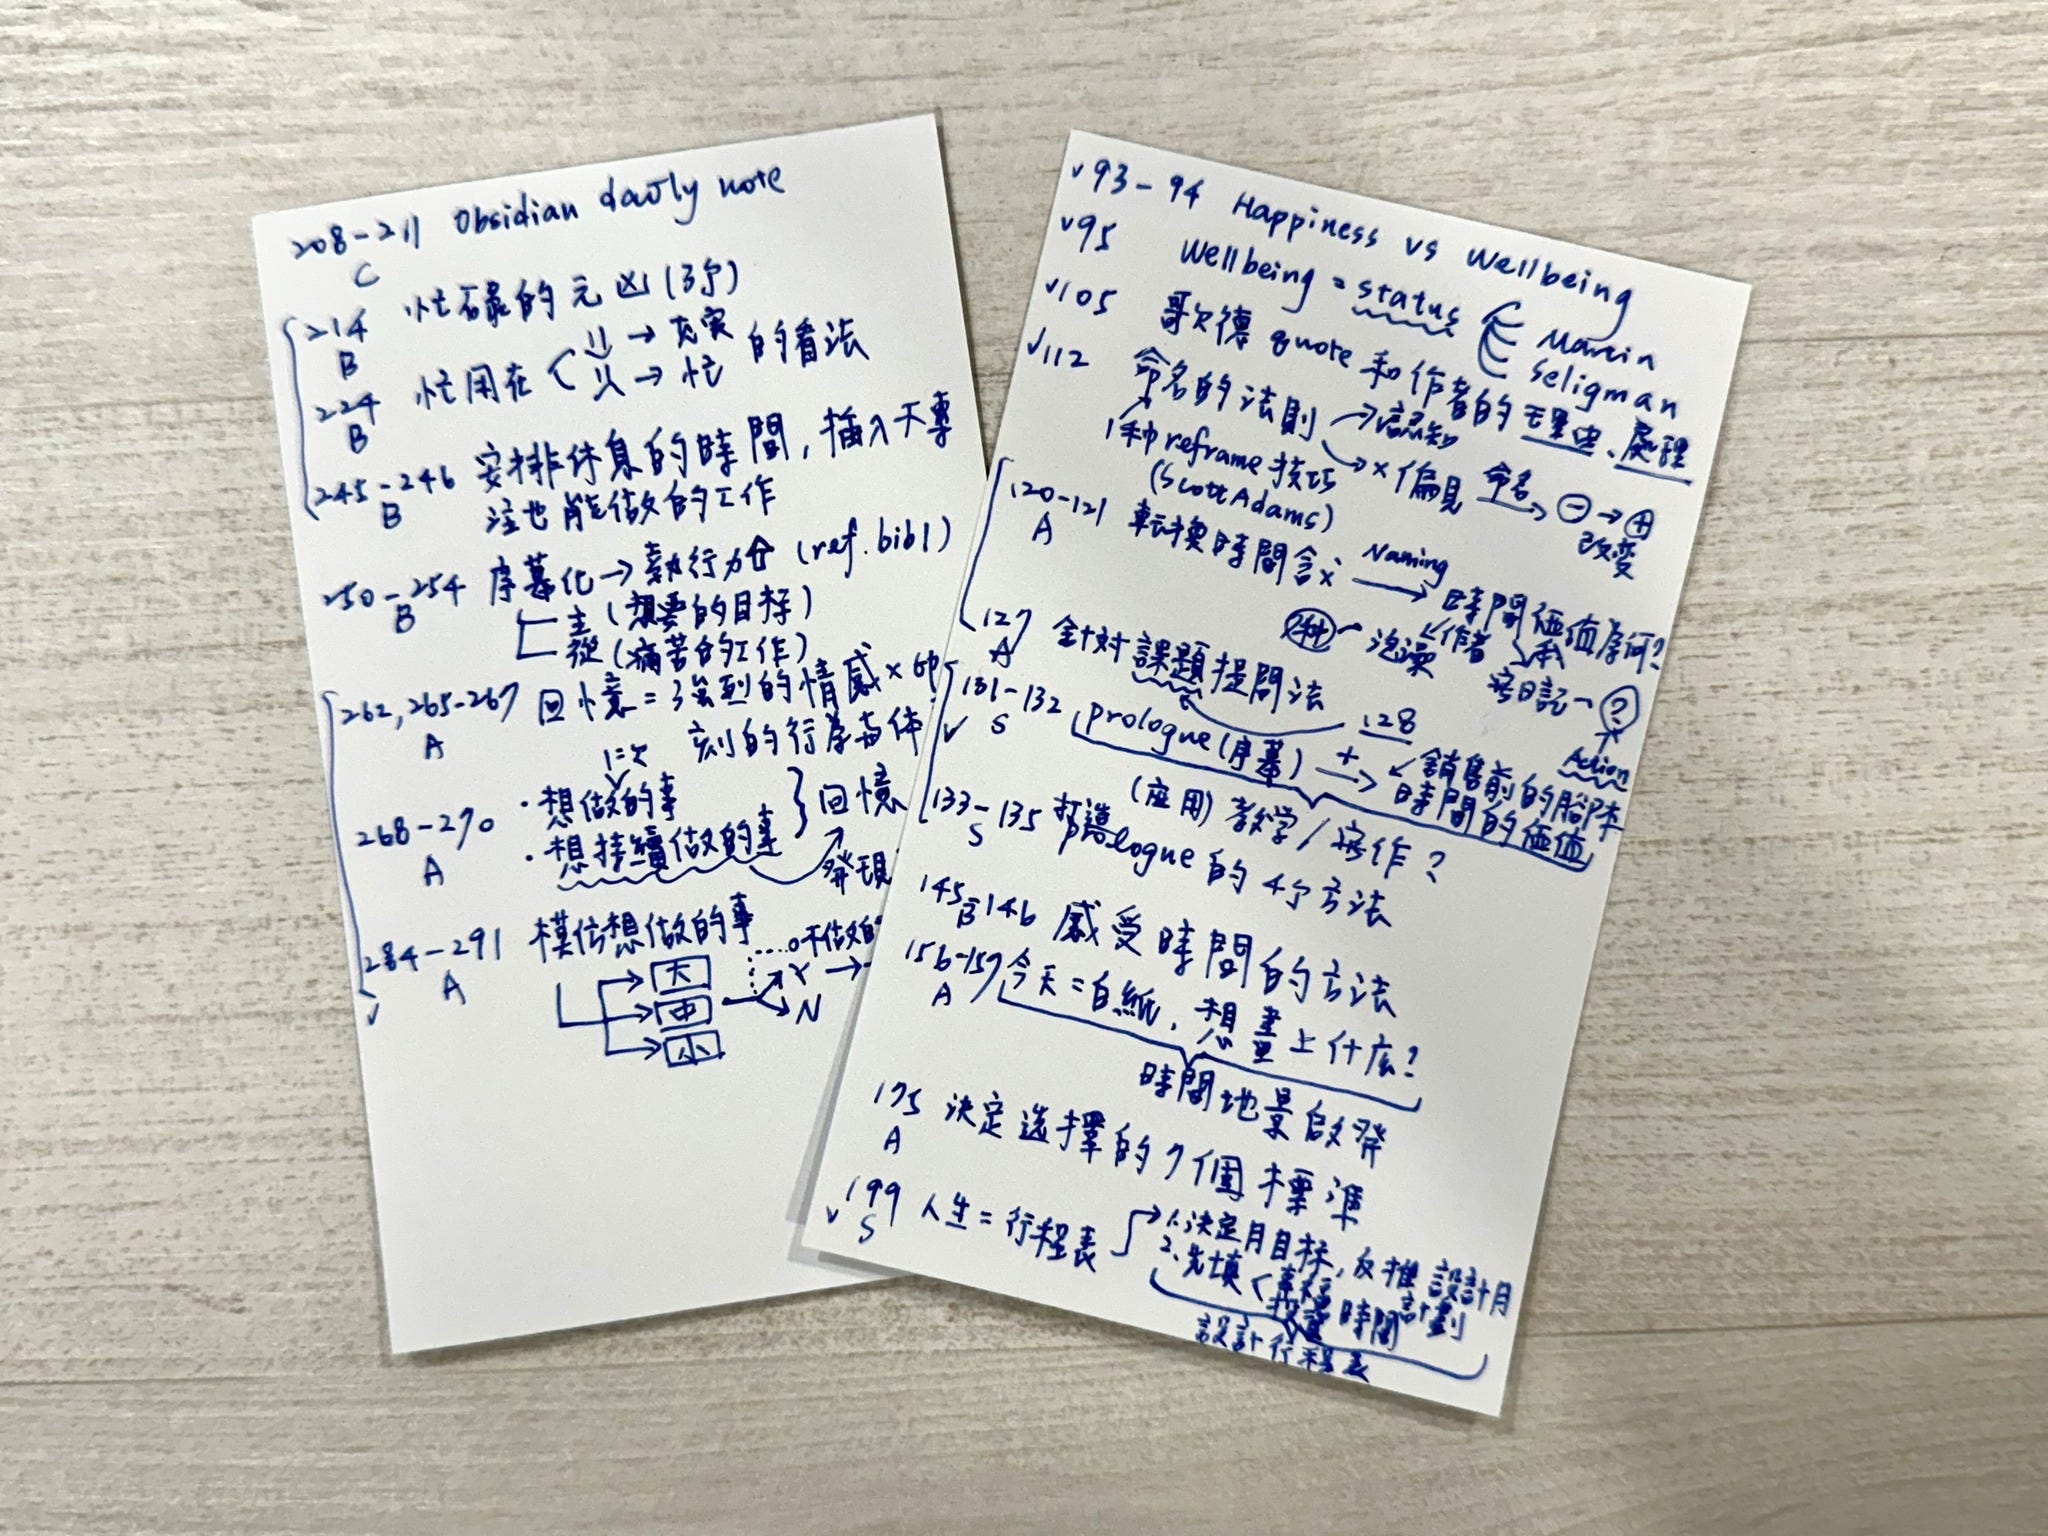 208-211 Obsidian daily note
C
214 忙碌的元凶(3个)
B
224 忙用在 → 充実 的看法
B → 忙
245-246 安排休息的時間，插入不專
B 注也能做的工作
250-254 序幕化→執行力 (ref. bib1)
B 主(想要的目标)
從(痛苦的工作)
262, 265-267 回憶=强烈的情感×
A 刻的行為
268-270 ·想做的事
A ·想持續做的事 } 回憶
發現
284-291 模仿想做的事
A 大
中 → Y →
小 N
✓
✓93-94 Happiness vs Wellbeing
✓95 Wellbeing = status
Martin
Seligman
✓105 歌德 quote 和作者的 、處理
✓112 命名的法則 → 認知
→ ×偏見 命名 → ⊖→⊕
改变
1种 reframe 技巧
(Scott Adams)
120-121 転換時間含义 Naming → 時間価値為何?
A 泡澡 作者 我
寫日記 ?
Action
127 針对課題提問法
A 128
131-132 prologue(序幕) + → 銷售前的腳本
S 時間的価值
✓ (应用) 教学/寫作?
133-135 打造prologue的4个方法
S
145-146 感受時間的方法
B
156-157 今天=白紙，想畫上什庅?
A
時間地景啟発
175 決定选擇的7個標準
A
✓199 人生=行程表 → 1.决定月目标, 反推設計月
S 計劃
2.先填 時間
設計行程表